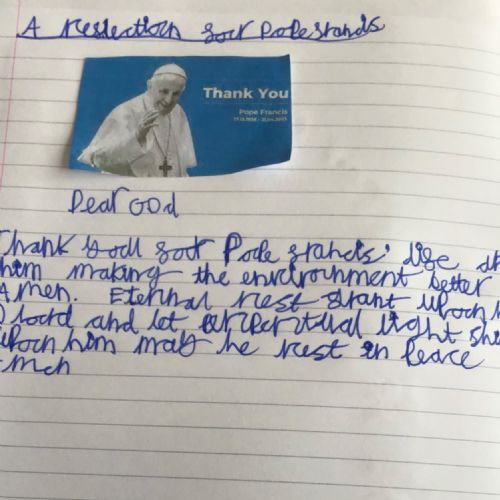 A reslection sor Pope srancis
Thank You
Pope Francis
Dear God
Thank you sor Pope srancis'
him making the environment better
Amen. Eternal rest grant upon h
O Lord and let perpertual light sh
upon him may he rest in peace
men